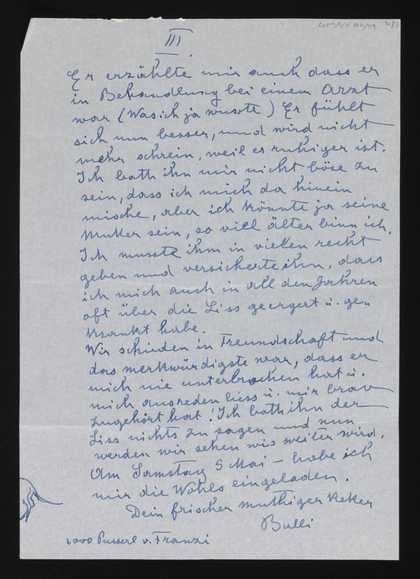 III
Er erzählte mir auch dass er
in Behandlung bei einem Arzt
war (Was ich ja wusste) Er fühlt
sich nun besser, und wird nicht
mehr schrein, weil er ruhiger ist.
Ich bath ihn mir nicht böse zu
sein, dass ich mich da hinein
mische, aber ich könnte ja seine
Mutter sein, so viel älter binn ich.
Ich musste ihm in vielen recht
geben und versicherte ihn, dass
ich mich auch in all den Jahren
oft über die Liss geergert u. ge
kränkt habe.
Wir schieden in Freundschaft und
das merkwürdigste war, dass er
mich nie unterbrochen hat u.
mich ausreden liess u. mir brav
zugehört hat! Ich bath ihn der
Liss nichts zu sagen und nun
werden wir sehen wies weiter wird.
Am Samstag 5 Mai – habe ich
mir die Wohls eingeladen.
Dein frischer muthiger
Bulli
1000 Pusserl v. Franzi